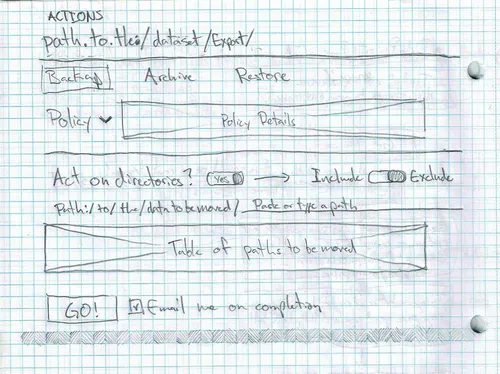 ACTIONS
path.to.the/dataset/Export/
Backup Archive Restore
Policy Policy Details
Act on directories? yes Include Exclude
Path:/to/the/data to be moved/ Paste or type a path
Table of paths to be moved
GO! Email me on completion